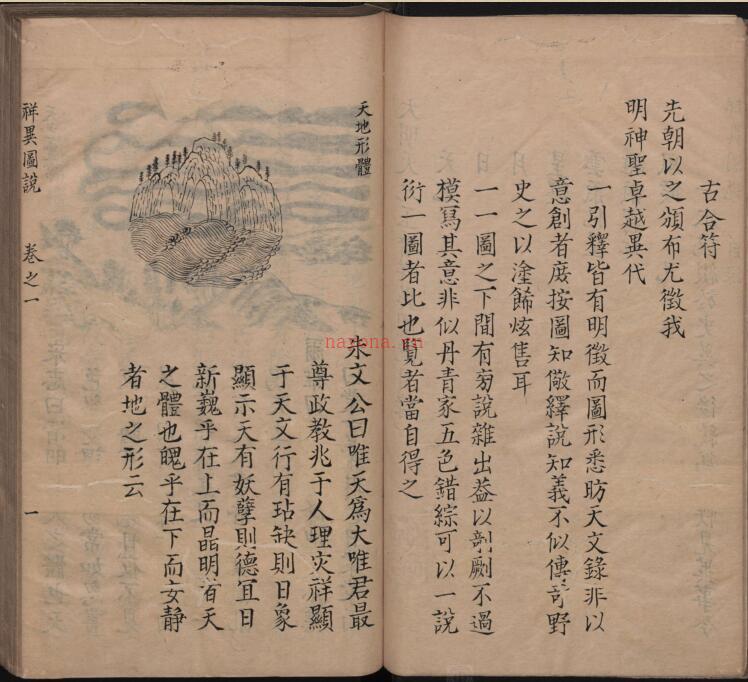 古合符
先朝以之頒布尤徵我
明神聖卓越異代
一引釋皆有明徵而圖形悉昉天文錄非以
意創者庶按圖知儆繹說知義不似傳奇野
史之以塗餙炫售耳
一一圖之下間有旁說雜出葢以剞劂不過
模寫其意非似丹青家五色錯綜可以一說
衍一圖者比也覧者當自得之
天地形體
朱文公曰唯天為大唯君最
尊政教兆于人理灾祥顯
于天文行有玷缺則日象
顯示天有妖孽則德冝日
新巍乎在上而晶明者天
之體也魄乎在下而安静
者地之形云
祥異圖說 卷之一 一
nazona.vn